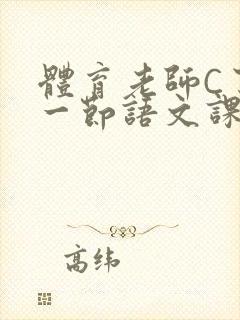 體育老師C
一節語文課
高纬